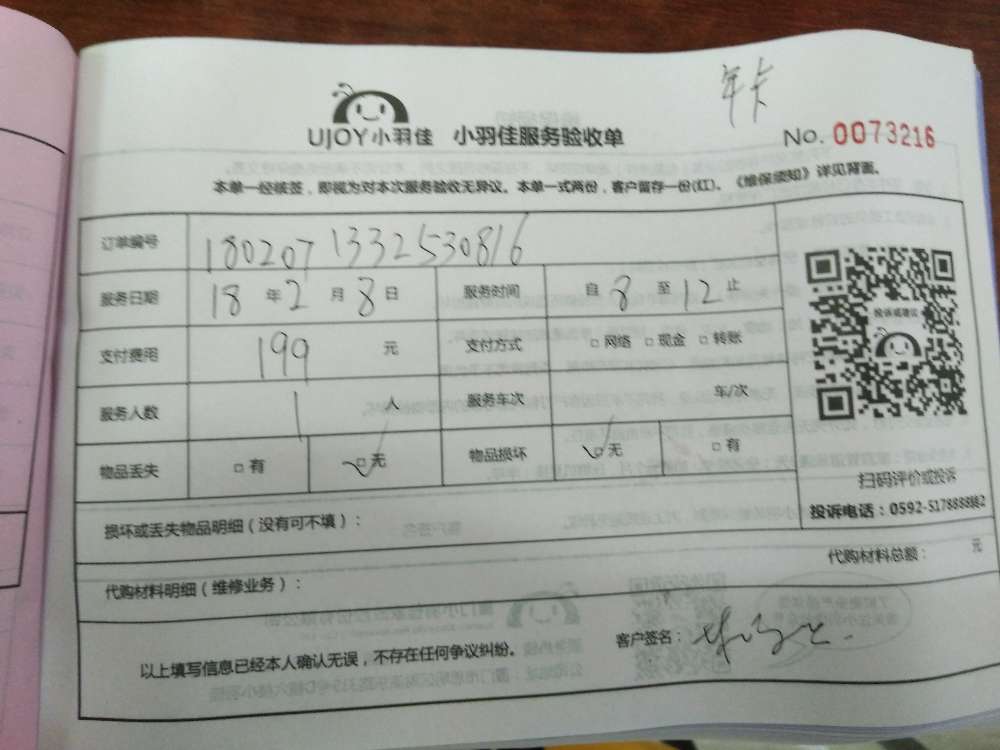 年卡
UJOY小羽佳 小羽佳服务验收单 No. 0073216
本单一经核签，即视为对本次服务验收无异议。本单一式两份，客户留存一份(红)。《维保须知》详见背面。
订单编号 1802071332530816
服务日期 18年2月8日 服务时间 自8至12止
支付费用 199元 支付方式 □网络 □现金 □转账
投诉或建议
服务人数 1人 服务车次 车/次
物品丢失 □有 □无 物品损坏 □无 □有
扫码评价或投诉
投诉电话：0592-5178888转2
损坏或丢失物品明细（没有可不填）：
代购材料明细（维修业务）： 代购材料总额： 元
以上填写信息已经本人确认无误，不存在任何争议纠纷。 客户签名：